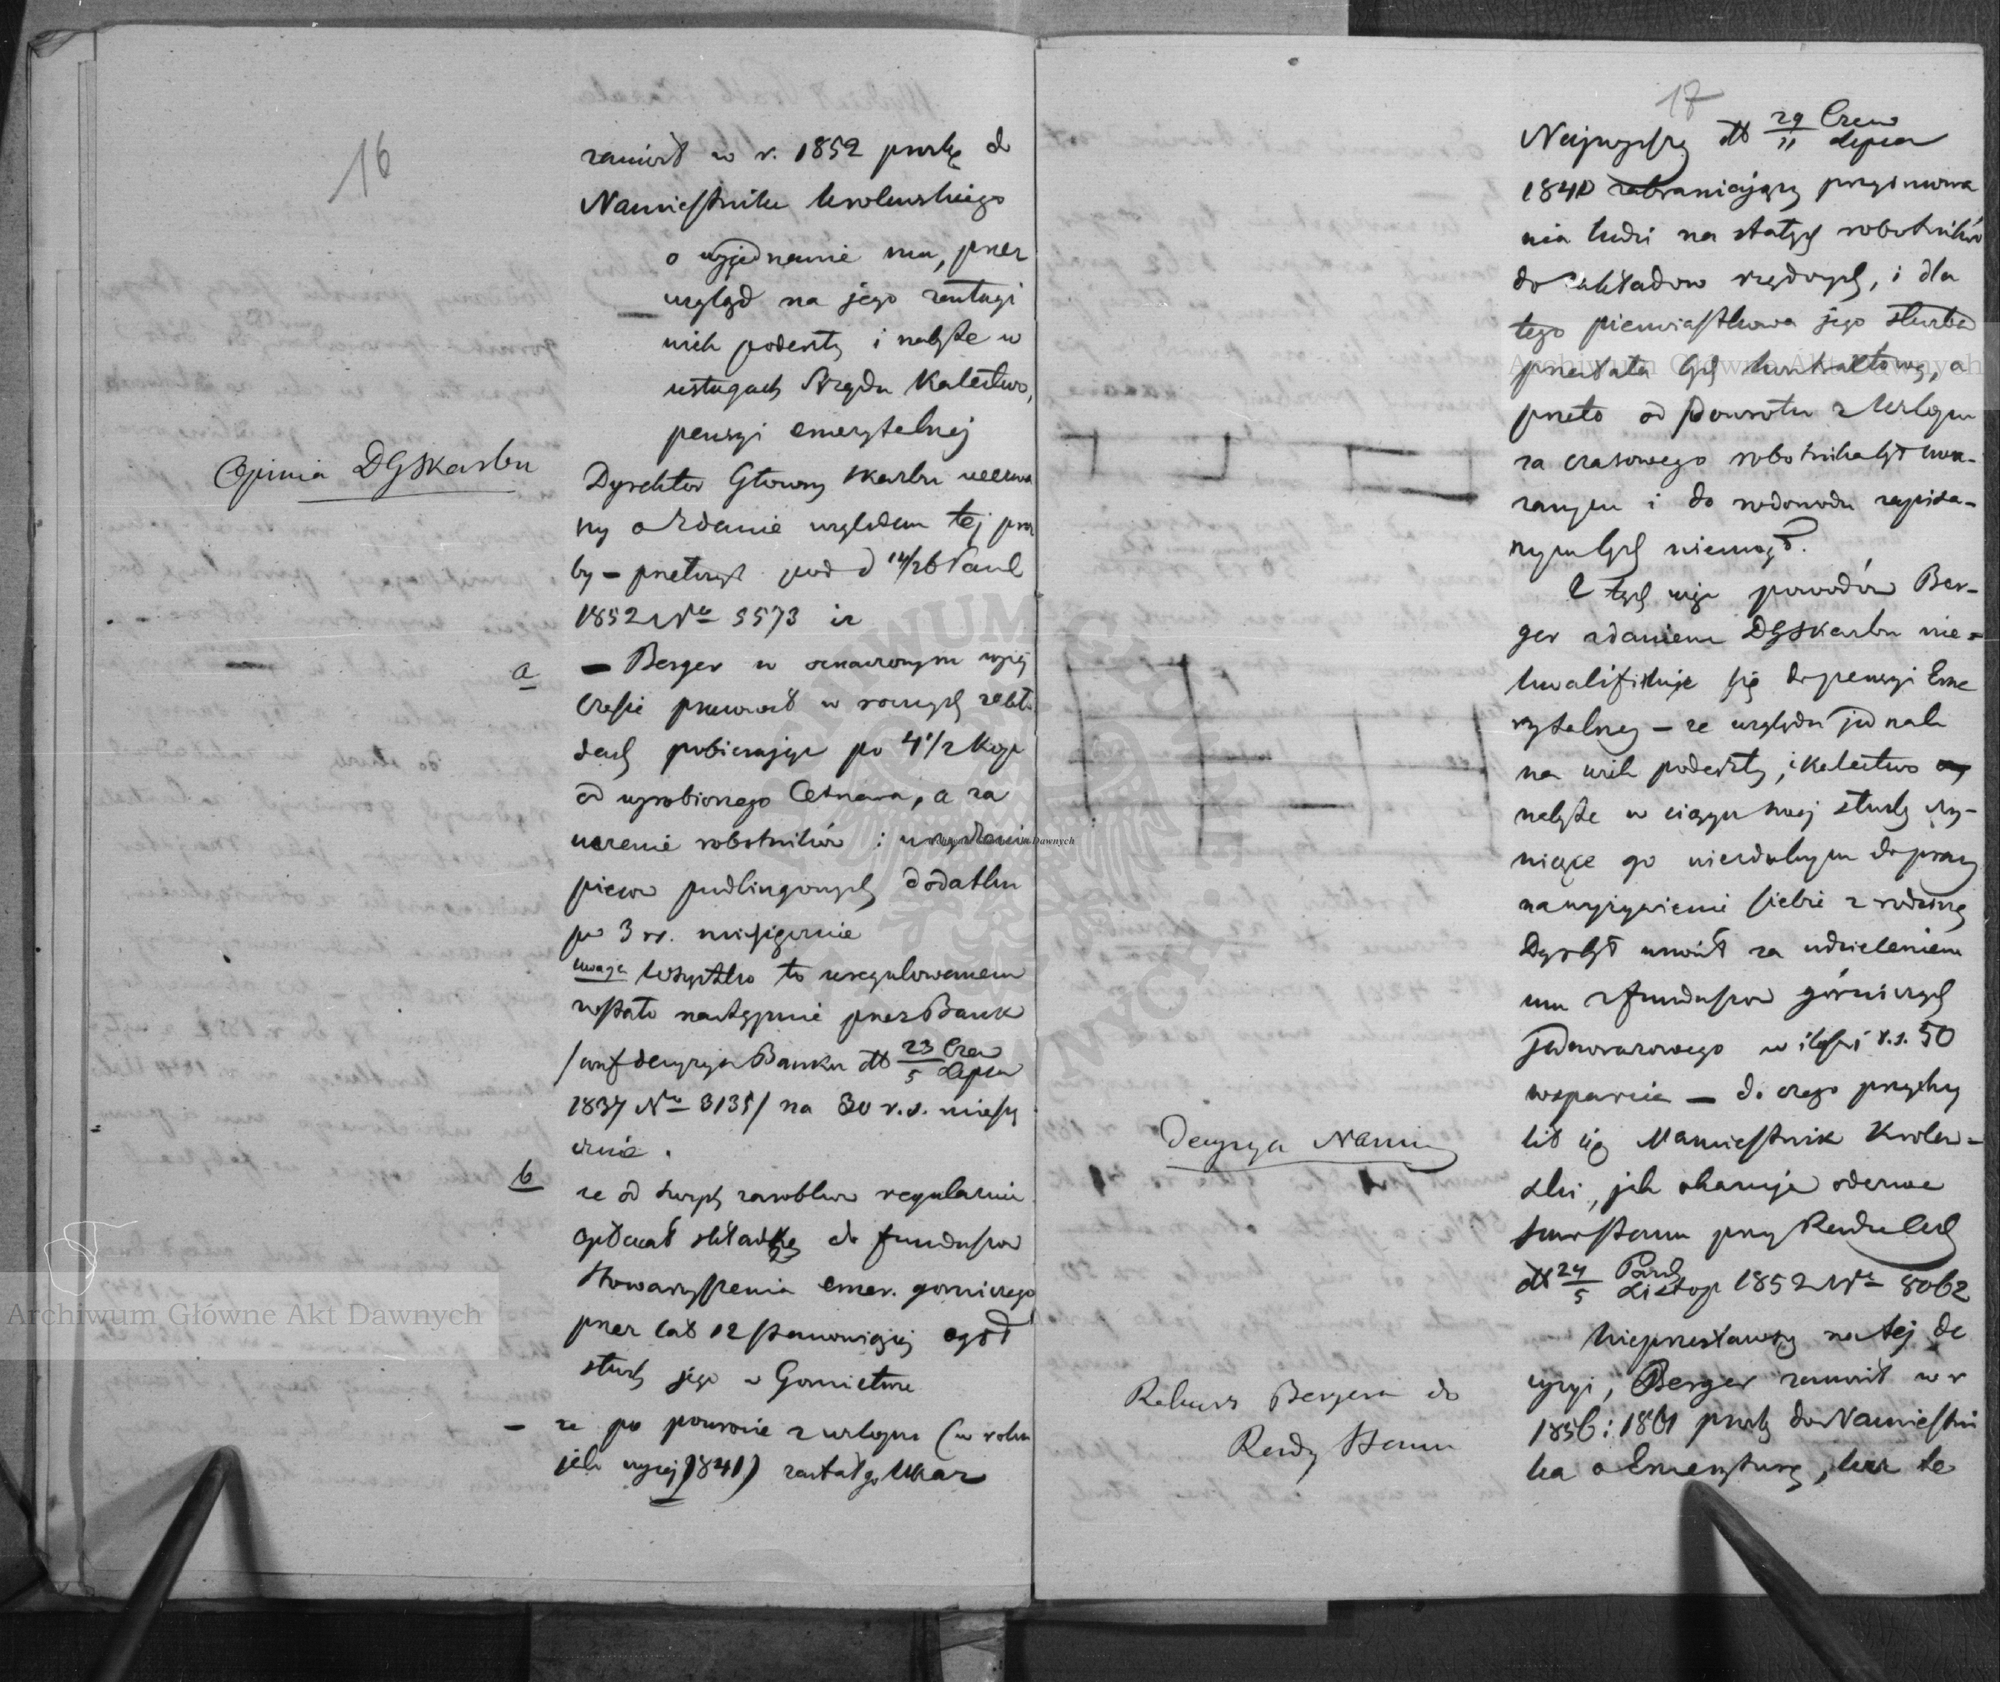 16
zaniósł w r. 1852 prośbę do
Namiestnika Królewskiego
o wyjednanie mu, przez
wzgląd na jego zasługi
wiek podeszły i nabyte w
usługach Rządu Kalectwo,
pensyi emerytalnej
Opinia DGSkarbu
Dyrektor Główny Skarbu wezwa
ny o zdanie względem tej proś
by – przełożył pod d 14/26 Paźd
1852 No 5573 iż
a – Berger w oznaczonym wyżej
czasie pracował w rożnych zakła
dach pobierając po 4 1/2 Kop
od wyrobionego Cetnara, a za
uczenie robotników i urządzenie
pieców pudlingowych dodatku
po 3 rs. miesięcznie
uwaga Wszystko to uregulowanem
zostało następnie przez Bank
/conf decyzya Banku dtt 23 Czer / 5 Lipca
1837 No 3135/ na 30 r.s. miesię
cznie.
b że od swych zarobków regularnie
opłacał składkę do funduszów
Stowarzyszenia emer. gorniczego
przez lat 12 stanowiącej ogół
służby jego w Gornictwie
– że po powrocie z urlopu (w roku
jak wyżej 1841) zastał go Ukaz
17
Najwyższy dtt 29 Czerw / 11 Lipca
1840 zabraniający przyimowa
nia ludzi na stałych robotników
do zakładow rządowych, i dla
tego pierwiastkowa jego służba
przestała być kontraktową, a
przeto od powrotu z Urlopu
za czasowego robotnika był uwa-
zanym i do rodowodu zapisa-
nym być niemógł.
Z tych więc powodów Ber-
ger zdaniem DGSkarbu nie=
kwalifikuje się do pensyi Eme
rytalnej – ze względu jednak
na wiek podeszły, i kalectwo
nabyte w ciągu swej służby czy-
niące go niezdolnym do pracy
na wyżywienie siebie z rodziną
Dyr był wniósł za udzieleniem
mu z funduszow górniczych
jednorazowego w ilości r.s. 50
wsparcia – do czego przychy
lił się Namiestnik Królew=
Decyzya Nami
ski, jak okazuje odezwa
Sekretarza Stanu przy Radzie
dtt 24 Paźdz / 5 Listop 1852 No 8062
Nieprzestawszy na tej de
cyzyi, Berger zanosił w r
Rekurs Bergera do
1856 i 1861 prośby do Namiestni
Rady Stanu
ka o Emeryturę, lecz te
Archiwum Główne Akt Dawnych
Archiwum Główne Akt Dawnych